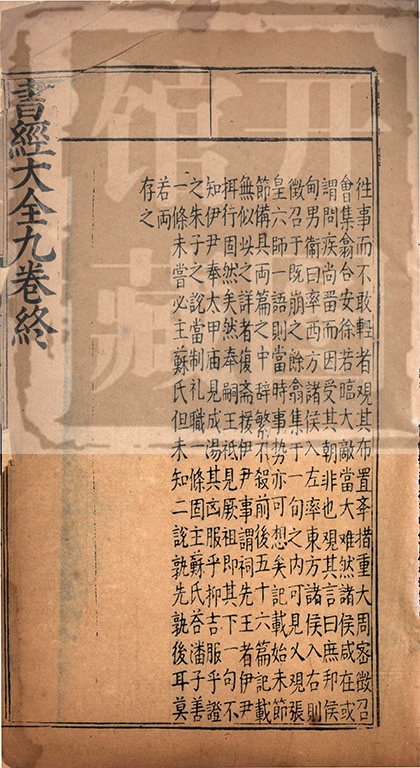 往事而不敢輕者觀其布置䇿措重大周密徵召
會集翕合安徐若臨大敵當大難然諸侯咸在或
謂問疾尚畱而因受其朝非也觀其言曰庶邦侯
甸男衛曰率西方諸侯入左率東方諸侯入右則
徵召于既崩之餘翕集于一句之内可見乂觀張
皇六師一語則當時事势亦可想矣記載始末節
節備具両篇之中辞繁不殺前後五十六篇記載
無似以之詳者復斋援伊尹事謂祠先王者伊尹
拜行固然矣然奉嗣王祗見厥祖即其下一句不
知伊尹奉太甲庙見成湯其凶服乎抑吉服乎證
之朱子之說當制礼職一條固主蘇氏荅潘子善
一條未嘗必主蘇氏但未知二說孰先孰後耳莫
若両
存之
書經大全九卷終